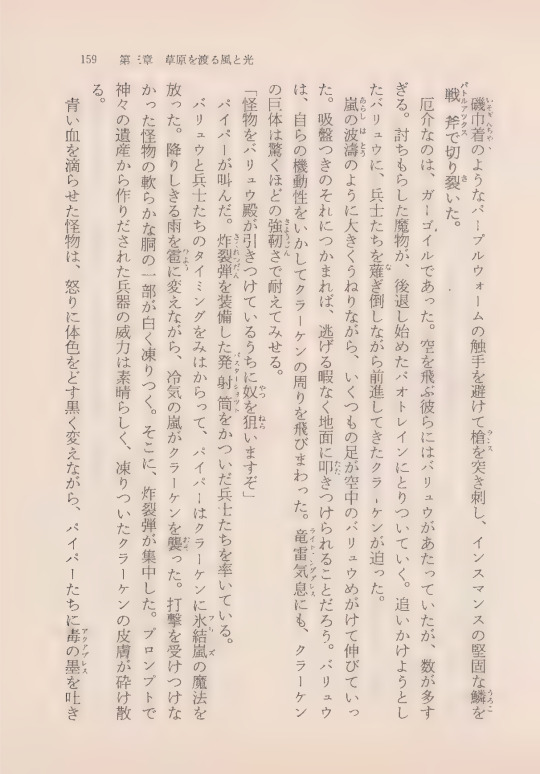 159　第三章　草原を渡る風と光
磯巾着のようなパープルウォームの触手を避けて槍を突き刺し、インスマンスの堅固な鱗を
戦斧で切り裂いた。
厄介なのは、ガーゴイルであった。空を飛ぶ彼らにはバリュウがあたっていたが、数が多す
ぎる。討ちもらした魔物が、後退し始めたバオトレインにとりついていく。追いかけようとし
たバリュウに、兵士たちを薙ぎ倒しながら前進してきたクラーケンが迫った。
嵐の波濤のように大きくうねりながら、いくつもの足が空中のバリュウめがけて伸びていっ
た。吸盤つきのそれにつかまれば、逃げる暇なく地面に叩きつけられることだろう。バリュウ
は、自らの機動性をいかしてクラーケンの周りを飛びまわった。竜雷気息にも、クラーケン
の巨体は驚くほどの強靭さで耐えてみせる。
「怪物をバリュウ殿が引きつけているうちに奴を狙いますぞ」
パイパーが叫んだ。炸裂弾を装備した発射筒をかついだ兵士たちを率いている。
バリュウと兵士たちのタイミングをみはからって、パイパーはクラーケンに氷結嵐の魔法を
放った。降りしきる雨を雹に変えながら、冷気の嵐がクラーケンを襲った。打撃を受けつけな
かった怪物の軟らかな胴の一部が白く凍りつく。そこに、炸裂弾が集中した。プロンプトで
神々の遺産から作りだされた兵器の威力は素晴らしく、凍りついたクラーケンの皮膚が砕け散
る。
青い血を滴らせた怪物は、怒りに体色をどす黒く変えながら、パイパーたちに毒の墨を吐き